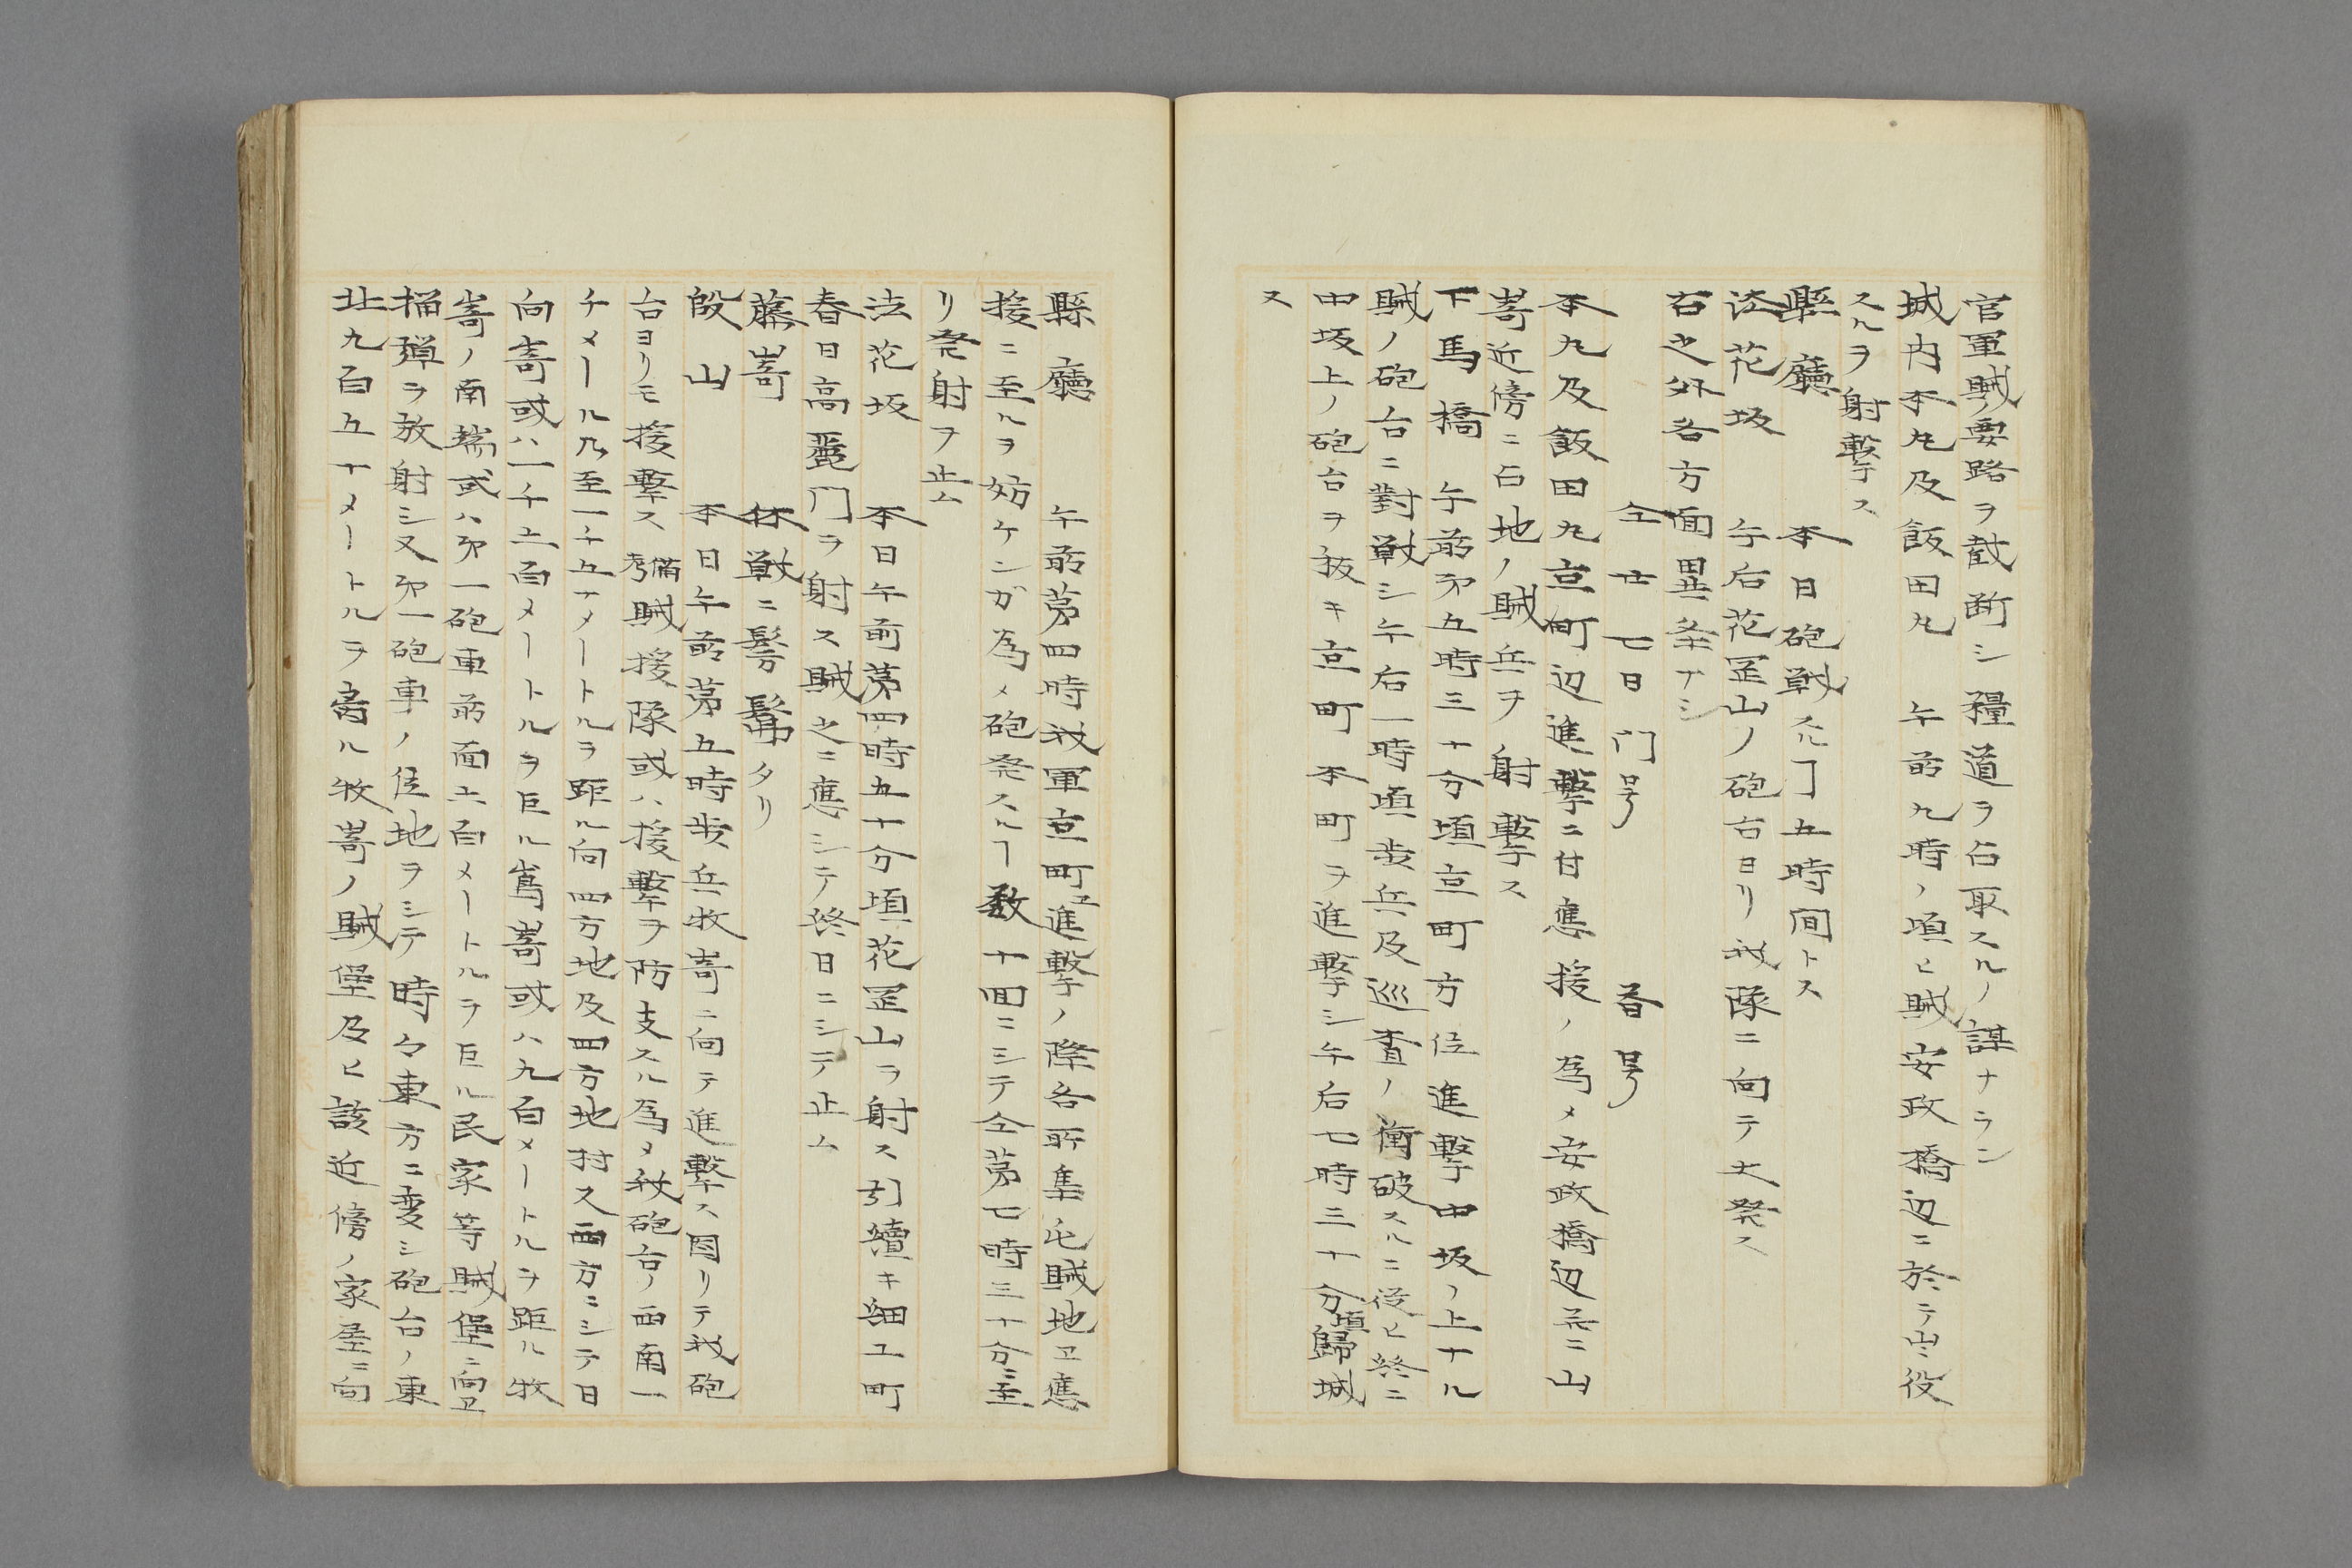 官軍賊ノ要路ヲ截断シ糧道ヲ占取スルノ謀ナラン
城内本丸及飯田丸　午前九時ノ頃ヒ賊安政橋辺ニ於テ出役
スルヲ射撃ス
縣廳　本日砲戦スルヿ五時間トス
法花坂　午后花罡山ノ砲台ヨリ我隊ニ向テ大発ス
右之外各方面異条ナシ
仝廿七日　門号　　答号
本丸及飯田丸京町辺進撃ニ付應援ノ為メ安政橋辺並ニ山
嵜近傍ニ占地ノ賊兵ヲ射撃ス
下馬橋　午前第五時三十分頃京町方位進撃中坂ノ上ナル
賊ノ砲台ニ對戦シ午后一時頃歩兵及巡査ノ衝破スルニ従ヒ終ニ
中坂上ノ砲台ヲ抜キ京町本町ヲ進撃シ午后七時三十分頃歸城
ス
縣廳　午前第四時我軍京町ヱ進撃ノ際各所集屯賊地ヱ應
援ニ至ルヲ妨ケンガ為メ砲発スルヿ数十回ニシテ仝第七時三十分ニ至
リ発射ヲ止ム
法花坂　本日午前第四時五十分頃花罡山ヲ射ス引續キ細工町
春日高麗門ヲ射ス賊之ニ應シテ終日ニシテ止ム
藤嵜　休戦ニ髣髴タリ
段山　本日午前第五時歩兵牧嵜ニ向テ進撃ス因リテ我砲
台ヨリモ援撃ス備考賊援隊或ハ援撃ヲ防支スル為メ我砲台ノ西南一
千メールル乃至一千五十メートルヲ距ル向四方地及四方地村又西方ニシテ日
向嵜或ハ一千二百メートルヲ巨ル嶌嵜或ハ九百メートルヲ距ル牧
嵜ノ南端或ハ第一砲車前面六百メートルヲ巨ル民家等賊堡ニ向ヱ
榴弾ヲ放射シ又第一砲車ノ位地ヲシテ時々東方ニ変シ砲台ノ東
北九百五十メートルヲ離ル牧嵜ノ賊堡及ヒ該近傍ノ家屋ニ向